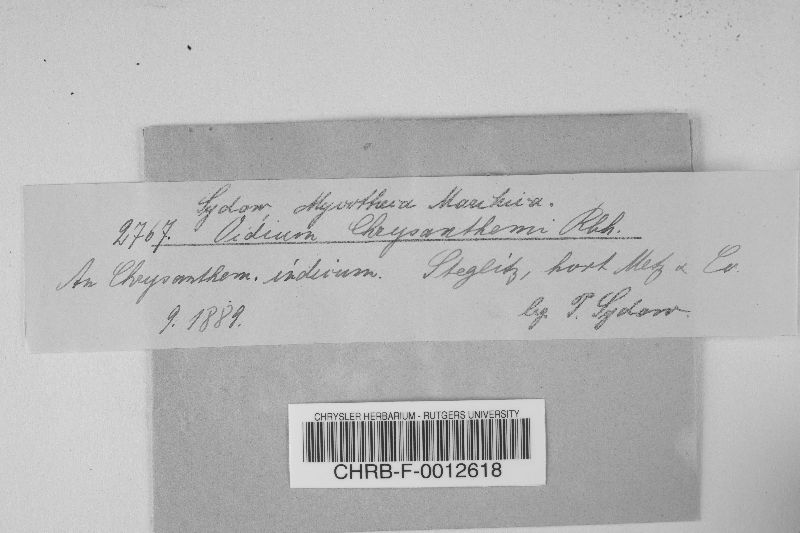 Sydow, Mycotheca Marchica.
2767. Oidium Chrysanthemi Rbh.
An Chrysanthem. indicum. Steglitz, hort Metz & Co.
9. 1889. leg. P. Sydow.
CHRYSLER HERBARIUM - RUTGERS UNIVERSITY
CHRB-F-0012618